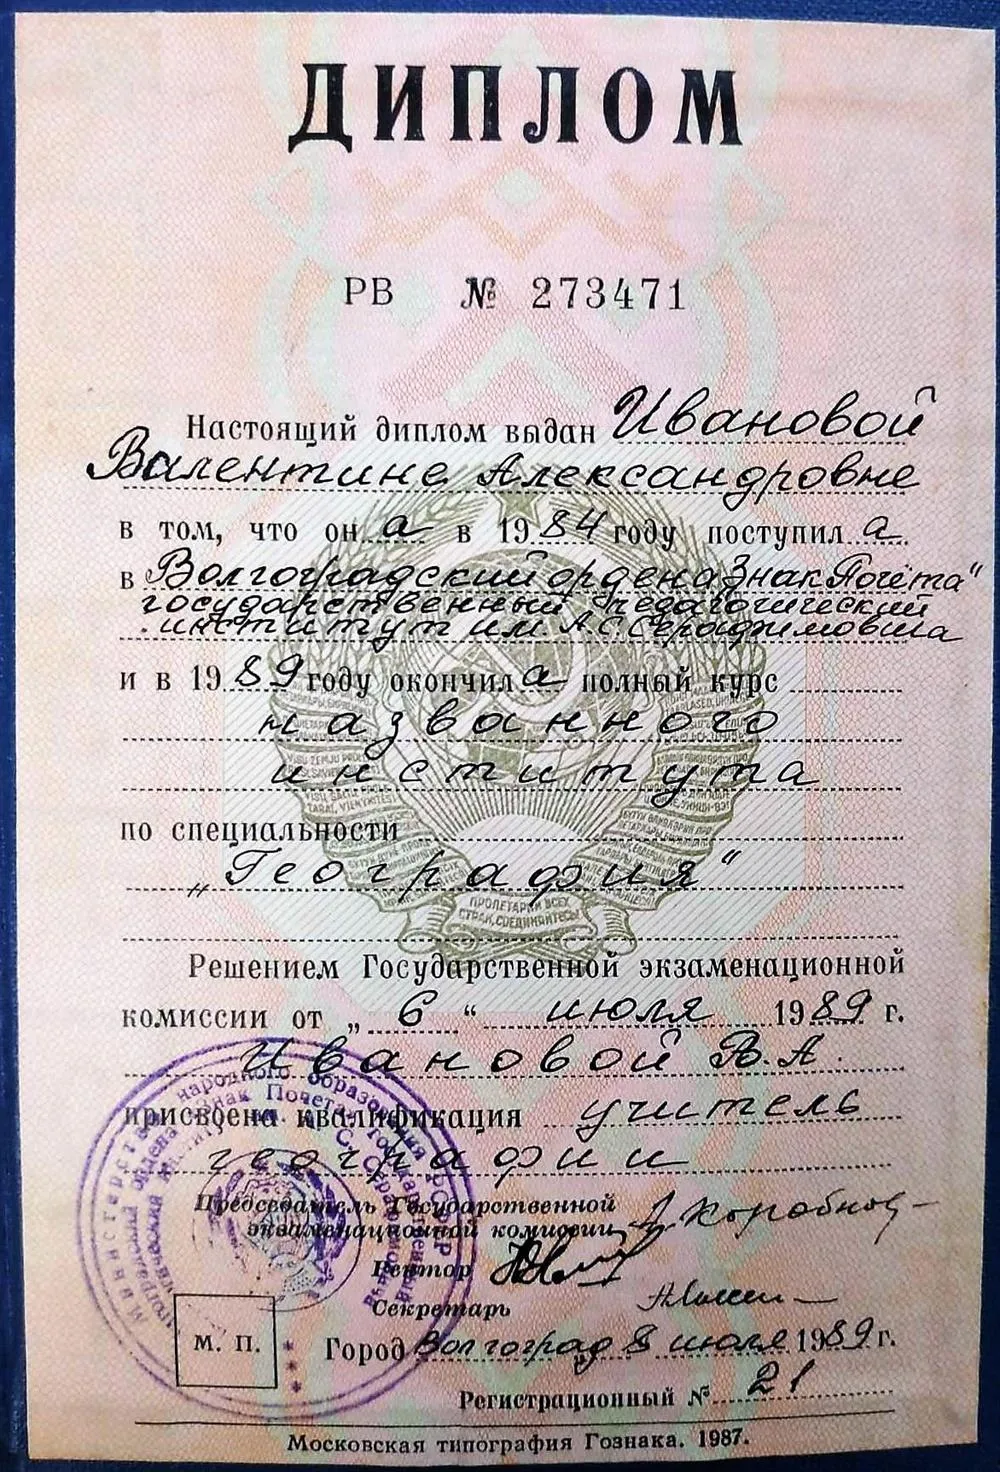 ДИПЛОМ
РВ № 273471
Настоящий диплом выдан Ивановой
Валентине Александровне
в том, что он а в 1984 году поступил а
в Волгоградский ордена „Знак Почёта"
государственный педагогический
институт им. А.С. Серафимовича
и в 1989 году окончил а полный курс
названного
института
по специальности
„География"
ПРОЛЕТАРИИ ВСЕХ
СТРАН, СОЕДИНЯЙТЕСЬ!
Решением Государственной экзаменационной
комиссии от „6" июля 1989 г.
Ивановой В.А.
присвоена квалификация учитель
географии
Председатель Государственной
экзаменационной комиссии
Ректор
Секретарь
М. П.
Город Волгоград 8 июля 1989 г.
Регистрационный № 21
Московская типография Гознака. 1987.